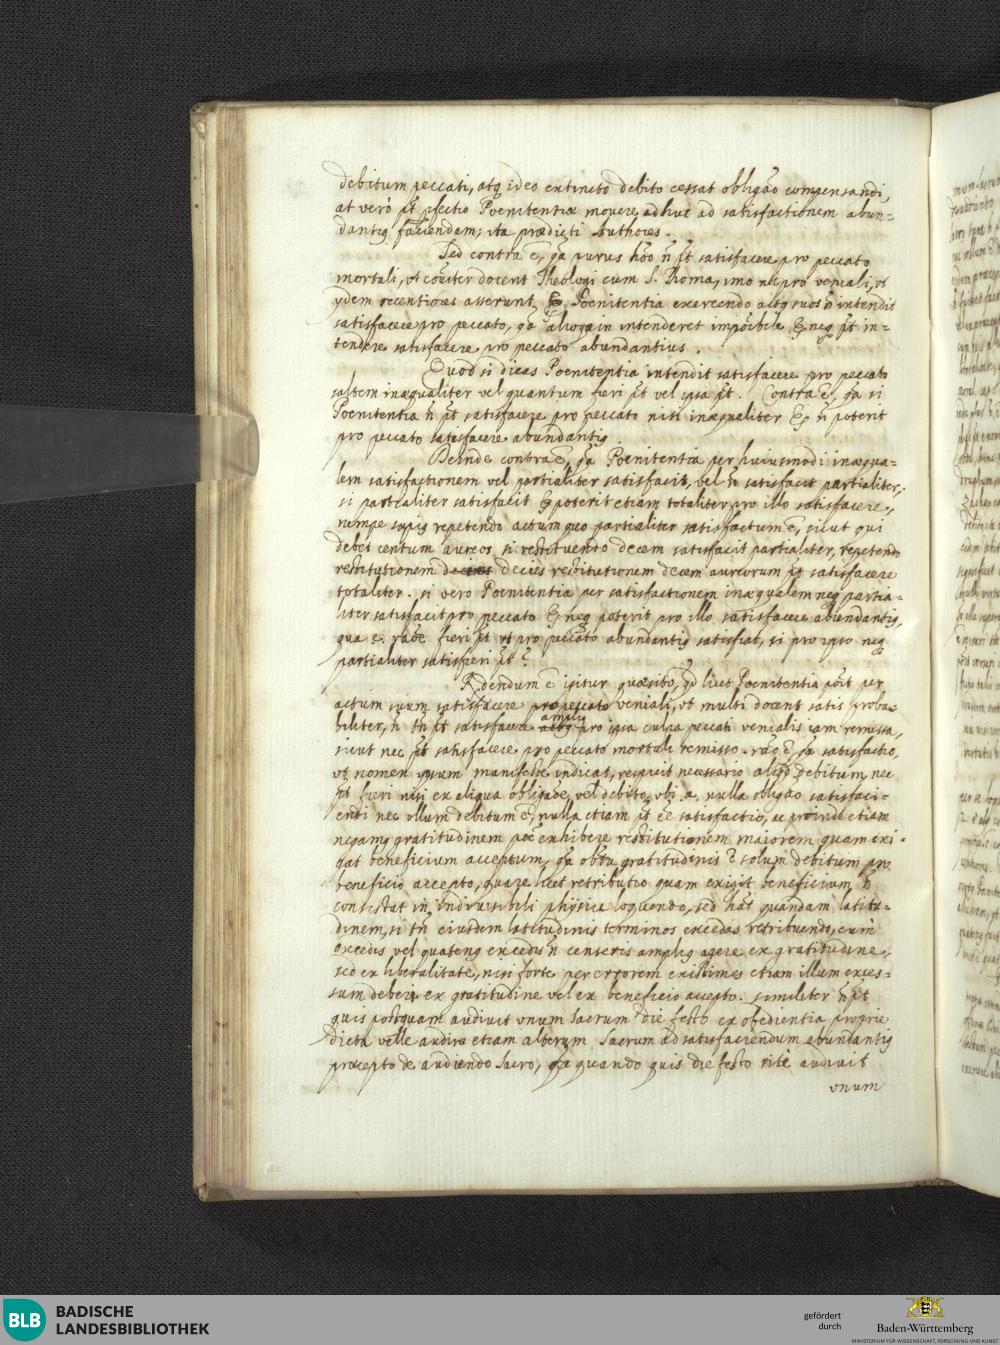 debitum peccati, atq ideo extincto debito cessat obligao compensandi,
at vero pt pfectio Poenitentiæ movere adhuc ad satisfactionem abun-
dantiq faciendam; ita prædicti Authores.
Sed contra ē, qa purus hōo ñ pt satisfacere pro peccato
mortali, vt coīter docent Theologi cum S. Thoma, imo nec pro veniali, vt
ijdem recentiores asserunt, Poenitentia exercendo actq suos ñ intendit
satisfacere pro peccato, qa alioqain intenderet impōibile Eg neq pt in-
tendere satisfacere pro peccato abundantius.
Quod si dicas Poenitentia intendit satisfacere pro peccato
saltem inæqualiter vel quantum fieri pt vel ipsa pt. Contra ē, qa si
Poenitentia ñ pt satisfacere pro peccato nisi inæqualiter Eg ñ poterit
pro peccato satisfacere abundantiq.
Deinde contra ē, qa Poenitentia per huiusmodi inæqua-
lem satisfactionem vel partialiter satisfacit, vel ñ satisfacit partialiter;
si partialiter satisfacit Eg poterit etiam totaliter pro illo satisfacere,
nempe sæpiq repetendo actum quo partialiter satisfactum ē, sicut qui
debet centum aureos si restituendo decem satisfacit partialiter, repetendo
restitutionem decies restitutionem decem aureorum pt satisfacere
totaliter. si vero Poenitentia per satisfactionem inæqualem neq partia-
liter satisfacit pro peccato Eg neq poterit pro illo satisfacere abundantiq,
qua e. raōe fieri pt vt pro peccato abundantiq satisfiat, si pro ipso neq
partialiter satisfieri pt?
Rdendum ē igitur quæsito, qd licet Poenitentia poīt per
actum suum satisfacere pro peccato veniali, vt multi docent satis proba-
biliter, ñ tñ pt satisfacere ampliq pro ipsa culpa peccati venialis iam remissa,
sicut nec pt satisfacere pro peccato mortali remisso. rāo ē, qa satisfactio,
vt nomen ipsum manifeste indicat, respicit necessario aliqd debitum, nec
pt fieri nisi ex aliqua obligaōe, vel debito, vbi .a. nulla obligāo satisfaci-
endi nec vllum debitum ē, nulla etiam pt eē satisfactio, ac proinde etiam
negamq gratitudinem poē exhibere restitutionem maiorem quam exi-
gat beneficium acceptum, qa obtū gratitudinis ē solum debitum pro
beneficio accepto, quare licet retributio quam exigit beneficium ñ
consistat in indivisibili physice loquendo, sed hāt quandam latitu-
dinem, si tñ eiusdem latitudinis terminos excedas retribuendo, cum
excedis vel quatenq excedis ñ censeris ampliq agere ex gratitudine,
sed ex liberalitate, nisi forte per errorem existimes etiam illum exces-
sum deberi ex gratitudine vel ex beneficio accepto. similiter ñ pt
quis postquam audiuit vnum sacrum die festo ex obedientia proprie
dicta velle audire etiam alterum sacrum ad satisfaciendum abundantiq
præcepto de audiendo sacro, qa quando quis die festo rite audiuit
vnum
BLB
BADISCHE
LANDESBIBLIOTHEK
gefördert
durch
Baden-Württemberg
MINISTERIUM FÜR WISSENSCHAFT, FORSCHUNG UND KUNST